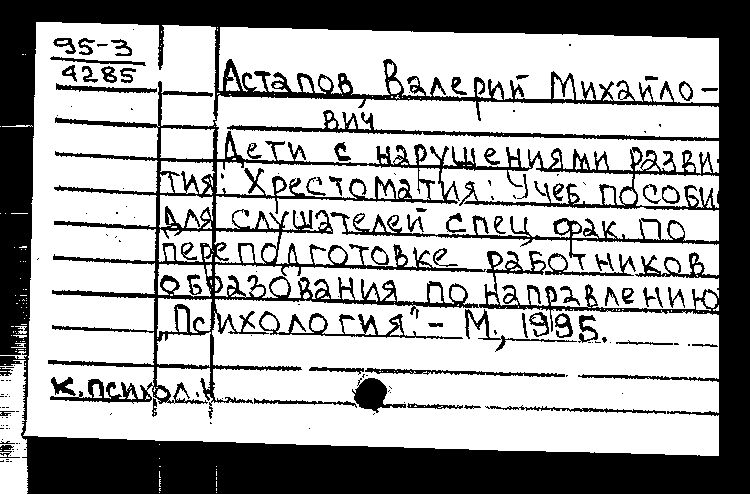 95-3
4285
Астапов, Валерий Михайло-
вич
Дети с нарушениями разви-
тия: Хрестоматия: Учеб. пособи
для слушателей спец. фак. по
переподготовке работников
образования по направлению
„Психология". - М., 1995.
к.психол.н